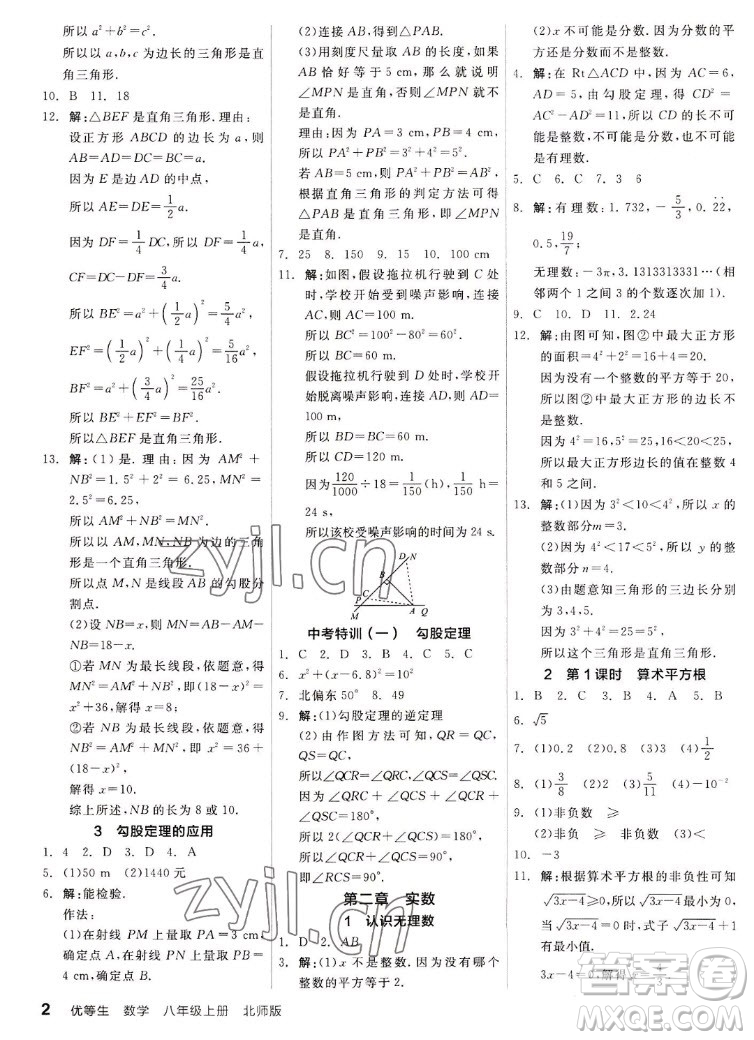 所以 a²+b²=c².
所以以 a,b,c 为边长的三角形是直
角三角形.
10. B 11. 18
12. 解:△BEF 是直角三角形.理由:
设正方形 ABCD 的边长为 a,则
AB=AD=DC=a.
因为 E 是边 AD 的中点,
所以 AE=DE=1/2 a.
所以 DF=1/4 DC,所以 DF=1/4 a,
CF=DC-DF=3/4 a.
所以 BE²=a²+(1/2 a)²=5/4 a²,
EF²=(1/2 a)²+(1/4 a)²=5/16 a²,
BF²=a²+(3/4 a)²=25/16 a².
所以 BE²+EF²=BF².
所以△BEF 是直角三角形.
13. 解:(1)是.理由:因为 AM²+
NB²=1.5²+2²=6.25,MN²=
2.5²=6.25,
所以 AM²+NB²=MN².
所以以 AM,MN,NB 为边的三角
形是一个直角三角形.
所以点 M,N 是线段 AB 的勾股分
割点.
(2)设 NB=x,则 MN=AB-AM-
NB=18-x.
①若 MN 为最长线段,依题意,得
MN²=AM²+NB²,即(18-x)²
=x²+36,解得 x=8;
②若 NB 为最长线段,依题意,得
NB²=AM²+MN²,即 x²=36+
(18-x)²,
解得 x=10.
综上所述,NB 的长为 8 或 10.
3 勾股定理的应用
1. 4 2. D 3. D 4. A
5. (1)50 m (2)1440 元
6. 解:能检验.
作法:
(1)在射线 PM 上量取 PA=3 cm,
确定点 A,在射线 PN 上量取 PB=
4 cm,确定点 B.
(2)连接 AB,得△PAB.
(3)用刻度尺量取 AB 的长,如果
AB 恰好等于 5 cm,那么就说明
∠MPN 是直角,否则∠MPN 不
是直角.
理由:因为 PA=3 cm,PB=4 cm,
所以 PA²+PB²=3²+4²=5².
若 AB=5 cm,则 PA²+PB²=AB².
根据直角三角形的判定方法可得
△PAB 是直角三角形,所以∠MPN
是直角.
7. 25 8. 150 9. 15 10. 100 cm
11. 解:如图,假设拖拉机行驶到 C 处
时,学校开始受到噪声影响,连接
AC,则 AC=100 m,
所以 BC²=100²-80²=60².
所以 BC=60 m.
假设拖拉机行驶到 D 处时,学校开
始脱离噪声影响,连接 AD,则 AD=
100 m,
所以 BD=BC=60 m.
所以 CD=120 m.
因为 120/1000÷18=1/150(h),1/150 h=
24 s,
所以该校受噪声影响的时间为 24 s.
N
D
B
C
P
M
A
Q
中考特训(一) 勾股定理
1. C 2. D 3. B 4. C 5. D
6. x²+(x-6.8)²=10²
7. 北偏东50° 8. 49
9. 解:(1)勾股定理的逆定理
(2)由作图方法可知,QR=QC,
QS=QC,
所以∠QCR=∠QRC,∠QCS=∠QSC.
因为∠QCR+∠QRC+∠QCS+
∠QSC=180°,
所以 2(∠QCR+∠QCS)=180°,
所以∠QCR+∠QCS=90°,
所以∠RCS=90°.
第二章 实数
1 认识无理数
1. D 2. AB
3. 解:(1)x 不是整数.因为没有一个
整数的平方等于2.
(2)x 不可能是分数.因为分数的平
方还是分数而不是整数.
4. 解:在 Rt△ACD 中,因为 AC=6,
AD=5,由勾股定理,得 CD²=
AC²-AD²=11,所以高 CD 不可
能是整数,不可能是分数,也不可能
是有理数.
5. C 6. C 7. 3 6
8. 解:有理数:1.732,-5/3,0.2̇2̇,
0.5,19/7;
无理数:-3π,3.1313313331…(相
邻两个 1 之间 3 的个数逐次加1).
9. C 10. D 11. 2.24
12. 解:由图可知,图②中最大正方形
的面积=4²+2²=16+4=20.
因为没有一个整数的平方等于20,
所以图②中最大正方形的边长不
是整数.
因为 4²=16,5²=25,16<20<25,
所以最大正方形边长的值在整数 4
和 5 之间.
13. 解:(1)因为 3²<10<4²,所以 x 的
整数部分 m=3.
(2)因为 4²<17<5²,所以 y 的整
数部分 n=4.
(3)由题意知三角形的三边长分别
为 3,4,5.
因为 3²+4²=5²,
所以这个三角形是直角三角形.
2 第1课时 算术平方根
1. B 2. C 3. A 4. D 5. D
6. √5
7. (1)0.2 (2)3 (3)0.4 (4)1/2
8. (1)3/8 (2)3 (3)5/11 (4)10⁻²
9. (1)非负数 ⩾
(2)非负 ⩾ 非负数 ⩾
10. -3
11. 解:根据算术平方根的意义,得
√3x-4⩾0,所以当 √3x-4 取 0
时,3+√3x-4 的值最小,所以
当 √3x-4=0 时,式子 √3x-4+3 有
有最小值.
3x-4=0,解得 x=4/3.
2 优等生 数学 八年级上册 北师版
zyjl.cn
作业精灵